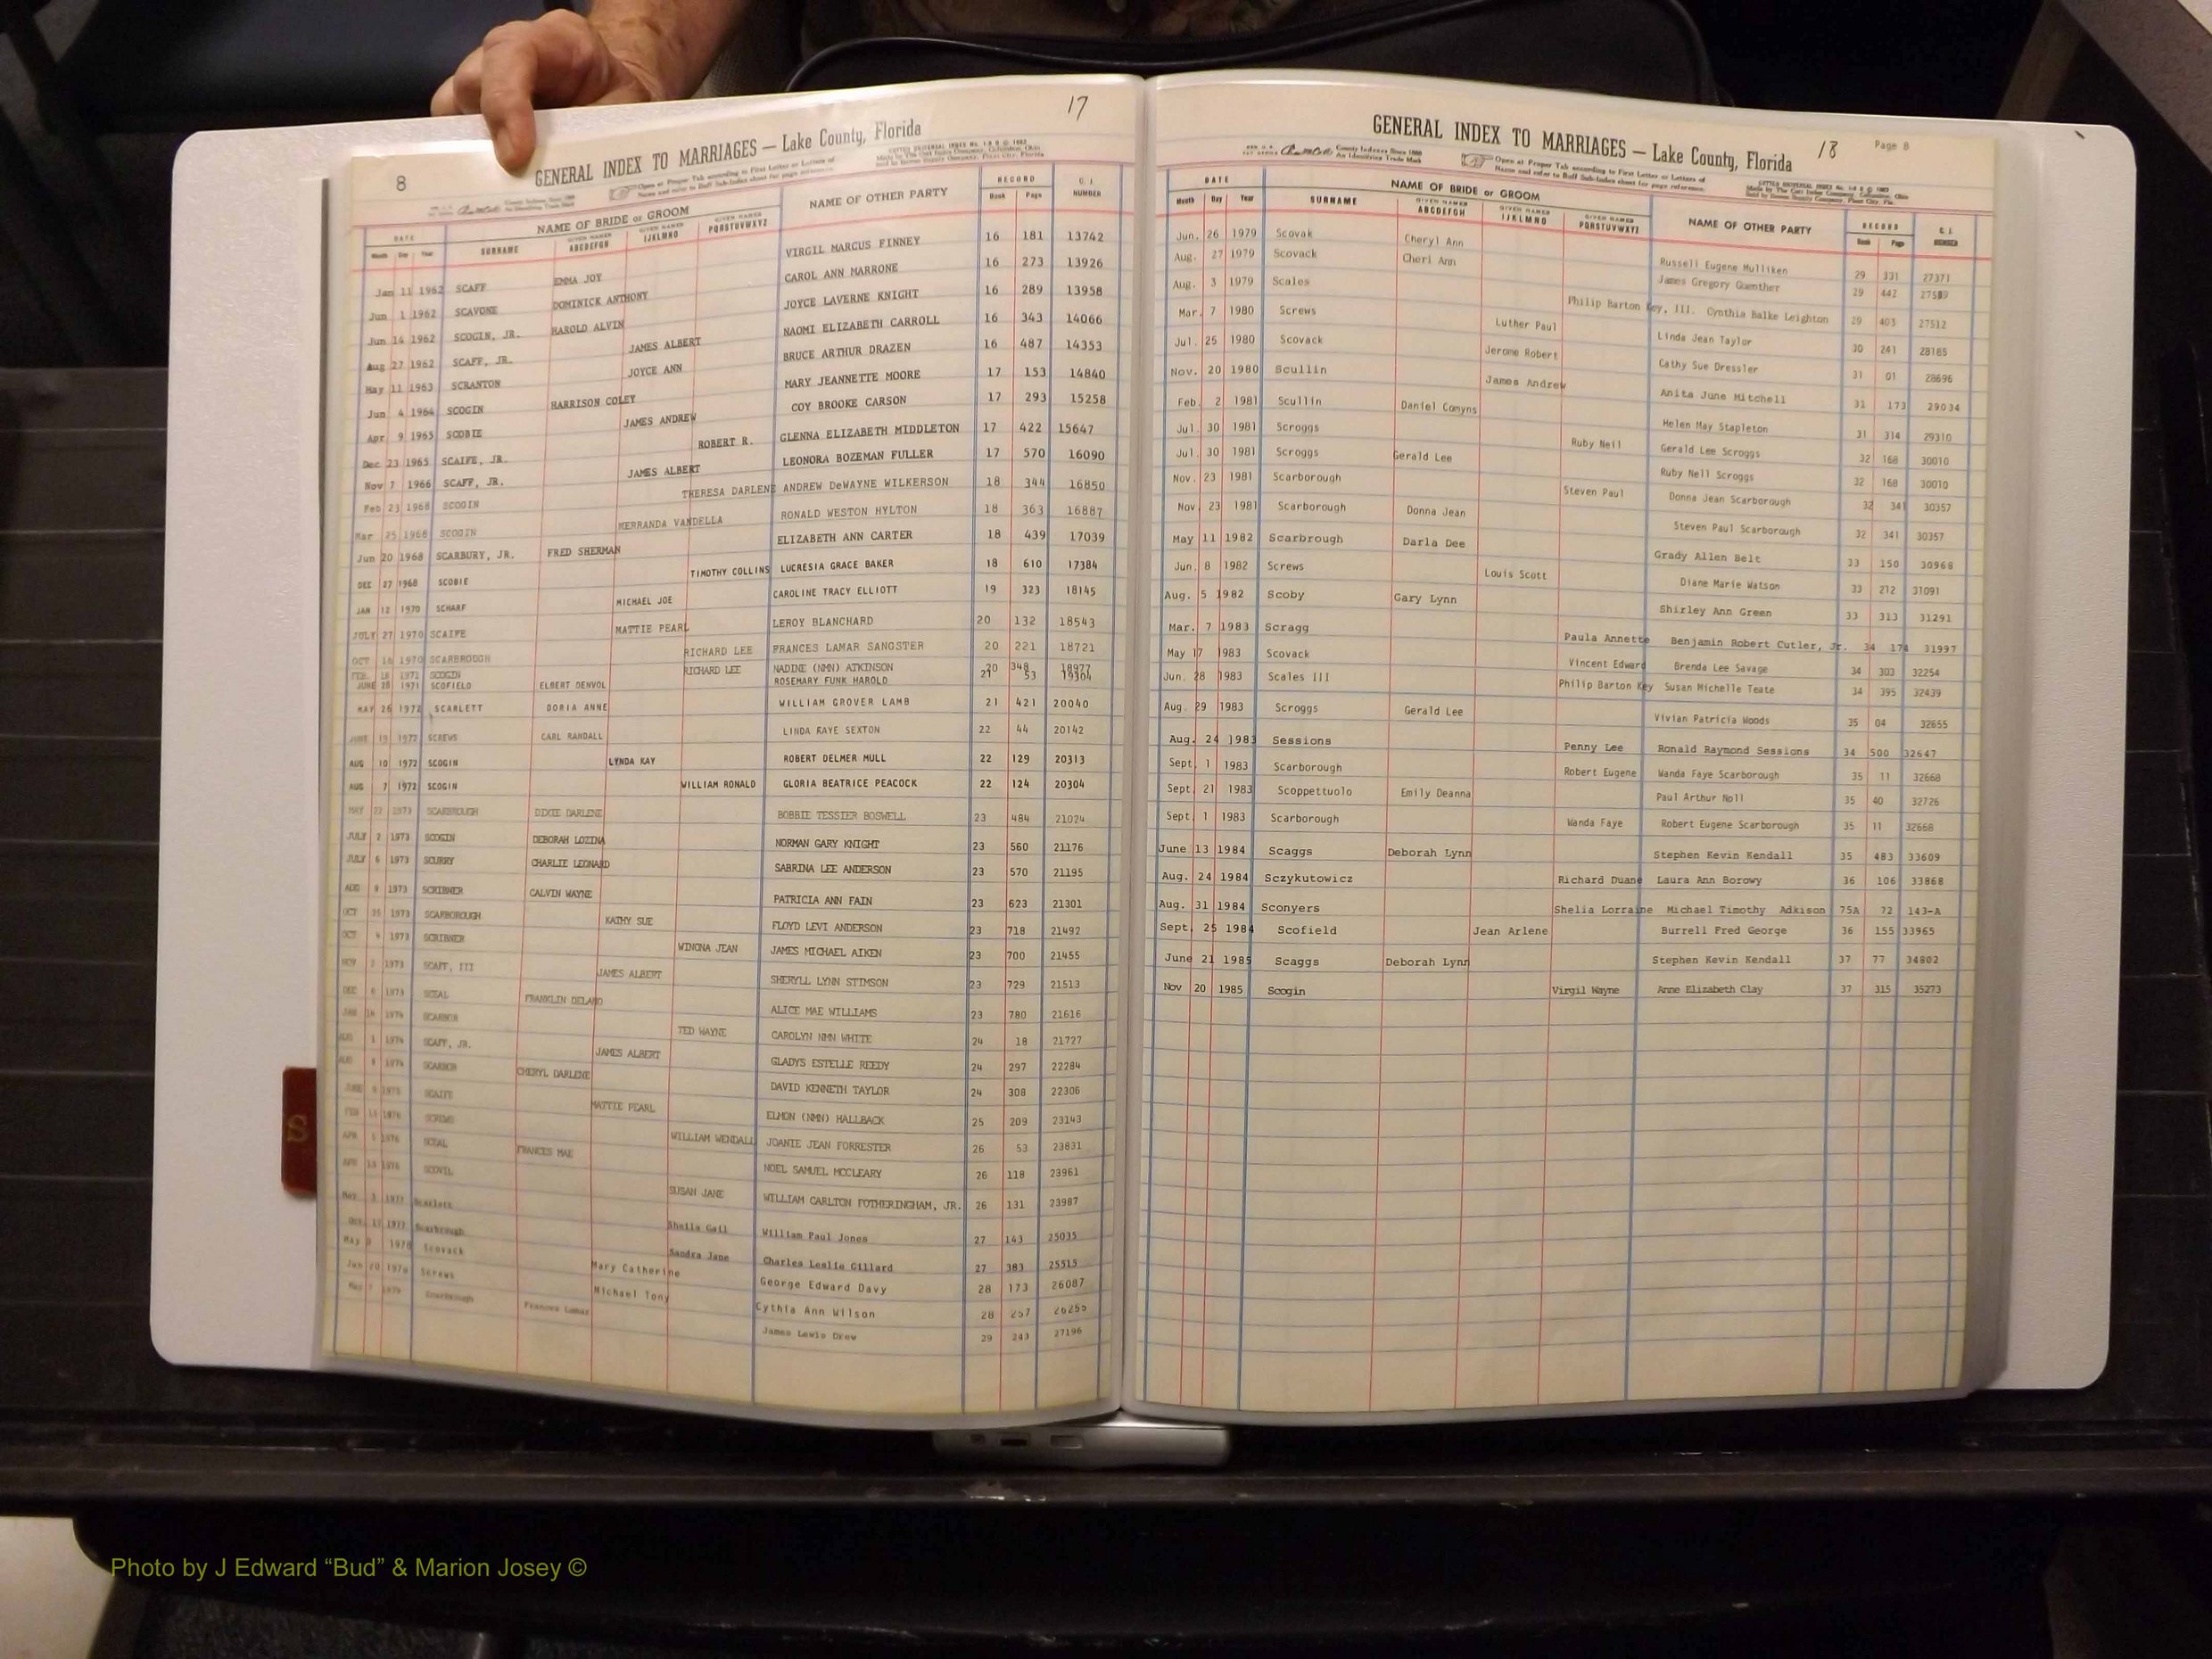 17
8
GENERAL INDEX TO MARRIAGES — Lake County, Florida
Open at Proper Tab according to First Letter or Letters of
Name and refer to Buff Sub-Index sheet for page reference.
DATE NAME OF BRIDE or GROOM NAME OF OTHER PARTY RECORD C. I.
Month Day Year SURNAME GIVEN NAMES ABCDEFGH GIVEN NAMES IJKLMNO GIVEN NAMES PQRSTUVWXYZ Book Page NUMBER
Jan 11 1962 SCAFF EMMA JOY VIRGIL MARCUS FINNEY 16 181 13742
Jun 1 1962 SCAVONE DOMINICK ANTHONY CAROL ANN MARRONE 16 273 13926
Jun 14 1962 SCOGIN, JR. HAROLD ALVIN JOYCE LAVERNE KNIGHT 16 289 13958
Aug 27 1962 SCAFF, JR. JAMES ALBERT NAOMI ELIZABETH CARROLL 16 343 14066
May 11 1963 SCRANTON JOYCE ANN BRUCE ARTHUR DRAZEN 16 487 14353
Jun 4 1964 SCOGIN HARRISON COLEY MARY JEANNETTE MOORE 17 153 14840
Apr 9 1965 SCOBIE JAMES ANDREW COY BROOKE CARSON 17 293 15258
Dec 23 1965 SCAIFE, JR. ROBERT R. GLENNA ELIZABETH MIDDLETON 17 422 15647
Nov 7 1966 SCAFF, JR. JAMES ALBERT LEONORA BOZEMAN FULLER 17 570 16090
Feb 23 1968 SCOGIN THERESA DARLENE ANDREW DeWAYNE WILKERSON 18 344 16850
Mar 25 1968 SCOGIN KERRANDA VANDELLA RONALD WESTON HYLTON 18 363 16887
Jun 20 1968 SCARBURY, JR. FRED SHERMAN ELIZABETH ANN CARTER 18 439 17039
DEC 27 1968 SCOBIE TIMOTHY COLLINS LUCRESIA GRACE BAKER 18 610 17384
JAN 12 1970 SCHARF MICHAEL JOE CAROLINE TRACY ELLIOTT 19 323 18145
JULY 27 1970 SCAIFE MATTIE PEARL LEROY BLANCHARD 20 132 18543
OCT 16 1970 SCARBROUGH RICHARD LEE FRANCES LAMAR SANGSTER 20 221 18721
FEB. 18 1971 SCOGIN RICHARD LEE NADINE (NMN) ATKINSON 20 348 18977
JUNE 28 1971 SCOFIELD ELBERT DENVOL ROSEMARY FUNK HAROLD 21 53 19304
MAY 26 1972 SCARLETT DORIA ANNE WILLIAM GROVER LAMB 21 421 20040
JUNE 19 1972 SCREWS CARL RANDALL LINDA RAYE SEXTON 22 44 20142
AUG 10 1972 SCOGIN LYNDA KAY ROBERT DELMER MULL 22 129 20313
AUG 7 1972 SCOGIN WILLIAM RONALD GLORIA BEATRICE PEACOCK 22 124 20304
MAY 22 1973 SCARBROUGH DIXIE DARLENE BOBBIE TESSIER BOSWELL 23 484 21024
JULY 2 1973 SCOGIN DEBORAH LOZINA NORMAN GARY KNIGHT 23 560 21176
JULY 6 1973 SCURRY CHARLIE LEONARD SABRINA LEE ANDERSON 23 570 21195
AUG 9 1973 SCRIBNER CALVIN WAYNE PATRICIA ANN FAIN 23 623 21301
OCT 25 1973 SCARBOROUGH KATHY SUE FLOYD LEVI ANDERSON 23 718 21492
OCT 4 1973 SCRIBNER WINONA JEAN JAMES MICHAEL AIKEN 23 700 21455
NOV 2 1973 SCAFF, III JAMES ALBERT SHERYLL LYNN STIMSON 23 729 21513
DEC 6 1973 SCEAL FRANKLIN DELANO ALICE MAE WILLIAMS 23 780 21616
JAN 1974 SCARBOR TED WAYNE CAROLYN NMN WHITE 24 18 21727
AUG 1 1974 SCAFF, JR. JAMES ALBERT GLADYS ESTELLE REEDY 24 297 22284
AUG 1974 SCARBOR CHERYL DARLENE DAVID KENNETH TAYLOR 24 308 22306
JUNE 1975 MATTIE PEARL ELMON (NMN) HALLBACK 25 209 23143
FEB 1976 SCREWS WILLIAM WENDALL JOANIE JEAN FORRESTER 26 53 23831
APR 1976 SCEAL FRANCES MAE NOEL SAMUEL MCCLEARY 26 118 23961
APR 1976 SCOVIL SUSAN JANE WILLIAM CARLTON FOTHERINGHAM, JR. 26 131 23987
Mar. 3 1977 Scarlett Sheila Gail William Paul Jones 27 143 25035
Oct. 17 1977 Scarbrough Sandra Jane Charles Leslie Gillard 27 383 25515
May 8 1978 Scovack Mary Catherine George Edward Davy 28 173 26087
Jun 20 1978 Screws Michael Tony Cythia Ann Wilson 28 257 26255
May Scarbrough Frances Lamar James Lewis Drew 29 243 27196
S
18 Page 8
GENERAL INDEX TO MARRIAGES — Lake County, Florida
County Indexes Since 1888
An Identifying Trade Mark
Open at Proper Tab according to First Letter or Letters of
Name and refer to Buff Sub-Index sheet for page reference.
DATE NAME OF BRIDE or GROOM NAME OF OTHER PARTY RECORD C. I.
Month Day Year SURNAME GIVEN NAMES ABCDEFGH GIVEN NAMES IJKLMNO GIVEN NAMES PQRSTUVWXYZ Book Page NUMBER
Jun. 26 1979 Scovak Cheryl Ann Russell Eugene Mulliken 29 331 27371
Aug. 27 1979 Scovack Cheri Ann James Gregory Guenther 29 442
Aug. 3 1979 Scales Philip Barton Key, III. Cynthia Balke Leighton 29 403 27512
Mar. 7 1980 Screws Luther Paul Linda Jean Taylor 30 241 28185
Jul. 25 1980 Scovack Jerome Robert Cathy Sue Dressler 31 01 28696
Nov. 20 1980 Scullin James Andrew Anita June Mitchell 31 173 29034
Feb. 2 1981 Scullin Daniel Comyns Helen May Stapleton 31 314 29310
Jul. 30 1981 Scroggs Ruby Nell Gerald Lee Scroggs 32 168 30010
Jul. 30 1981 Scroggs Gerald Lee Ruby Nell Scroggs 32 168 30010
Nov. 23 1981 Scarborough Steven Paul Donna Jean Scarborough 32 341 30357
Nov. 23 1981 Scarborough Donna Jean Steven Paul Scarborough 32 341 30357
May 11 1982 Scarbrough Darla Dee Grady Allen Belt 33 150 30968
Jun. 8 1982 Screws Louis Scott Diane Marie Watson 33 212 31091
Aug. 5 1982 Scoby Gary Lynn Shirley Ann Green 33 313 31291
Mar. 7 1983 Scragg Paula Annette Benjamin Robert Cutler, Jr. 34 174 31997
May 17 1983 Scovack Vincent Edward Brenda Lee Savage 34 303 32254
Jun. 28 1983 Scales III Philip Barton Key Susan Michelle Teate 34 395 32439
Aug. 29 1983 Scroggs Gerald Lee Vivian Patricia Woods 35 04 32655
Aug. 24 1983 Sessions Penny Lee Ronald Raymond Sessions 34 500 32647
Sept. 1 1983 Scarborough Robert Eugene Wanda Faye Scarborough 35 11 32668
Sept. 21 1983 Scoppettuolo Emily Deanna Paul Arthur Noll 35 40 32726
Sept. 1 1983 Scarborough Wanda Faye Robert Eugene Scarborough 35 11 32668
June 13 1984 Scaggs Deborah Lynn Stephen Kevin Kendall 35 483 33609
Aug. 24 1984 Sczykutowicz Richard Duane Laura Ann Borowy 36 106 33868
Aug. 31 1984 Sconyers Shelia Lorraine Michael Timothy Adkison 75A 72 143-A
Sept. 25 1984 Scofield Jean Arlene Burrell Fred George 36 155 33965
June 21 1985 Scaggs Deborah Lynn Stephen Kevin Kendall 37 77 34802
Nov 20 1985 Scogin Virgil Wayne Anne Elizabeth Clay 37 315 35273
Photo by J Edward “Bud” & Marion Josey ©